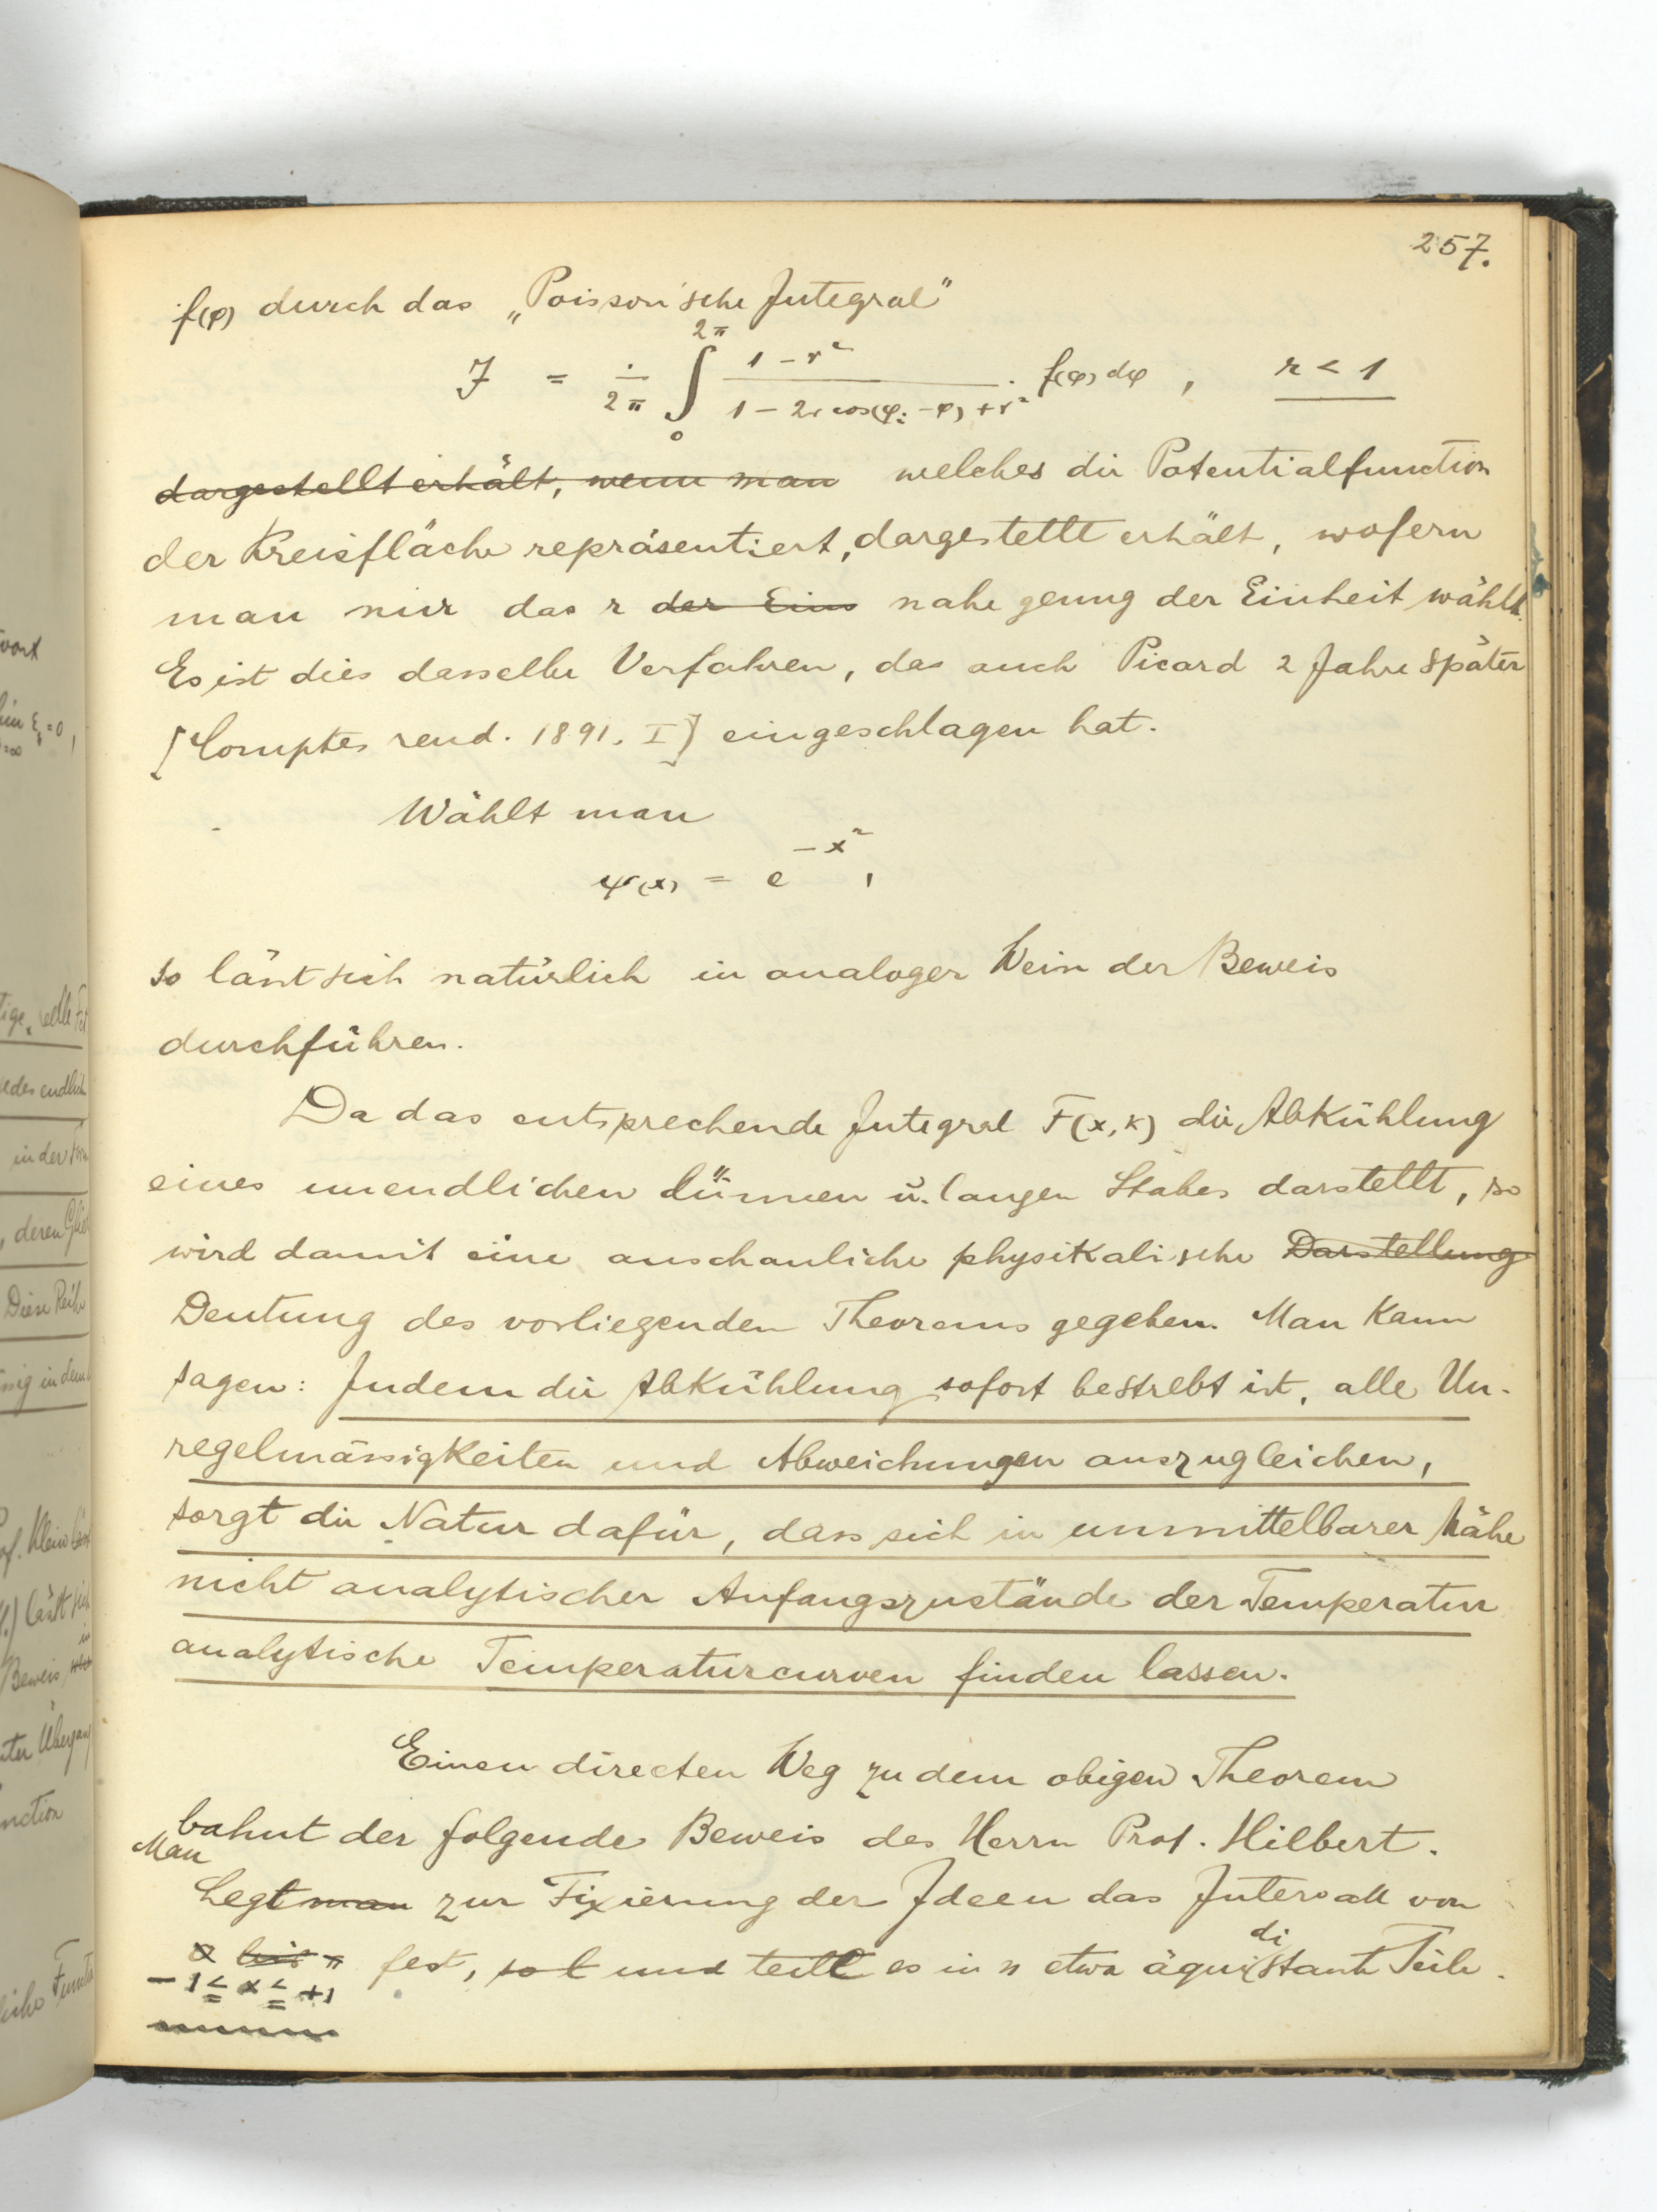 257.
f(φ) durch das „Poisson'sche Integral"
J = 1/2π ∫₀^2π (1 − r²)/(1 − 2r cos(φ₁ − φ) + r²) · f(φ) dφ , r < 1
dargestellt erhält, wenn man welches die Potentialfunction
der Kreisfläche repräsentiert, dargestellt erhält, wofern
man nur das r der Eins nahe genug der Einheit wählt.
Es ist dies dasselbe Verfahren, das auch Picard 2 Jahre später
[Comptes rend. 1891. I] eingeschlagen hat.
Wählt man
ψ(x) = e^−x² ,
so lässt sich natürlich in analoger Weise der Beweis
durchführen.
Da das entsprechende Integral F(x, k) die Abkühlung
eines unendlichen dünnen u. langen Stabes darstellt, so
wird damit eine anschauliche physikalische Darstellung
Deutung des vorliegenden Theorems gegeben. Man kann
sagen: Indem die Abkühlung sofort bestrebt ist, alle Un-
regelmässigkeiten und Abweichungen auszugleichen,
sorgt die Natur dafür, dass sich in unmittelbarer Nähe
nicht analytischer Anfangszustände der Temperatur
analytische Temperaturcurven finden lassen.
Einen directen Weg zu dem obigen Theorem
bahnt der folgende Beweis des Herrn Prof. Hilbert.
Man
Legt man zur Fixierung der Ideen das Intervall von
0 bis π fest, so und teilt es in n etwa äquidistante Teile.
−1 ≤ x ≤ +1